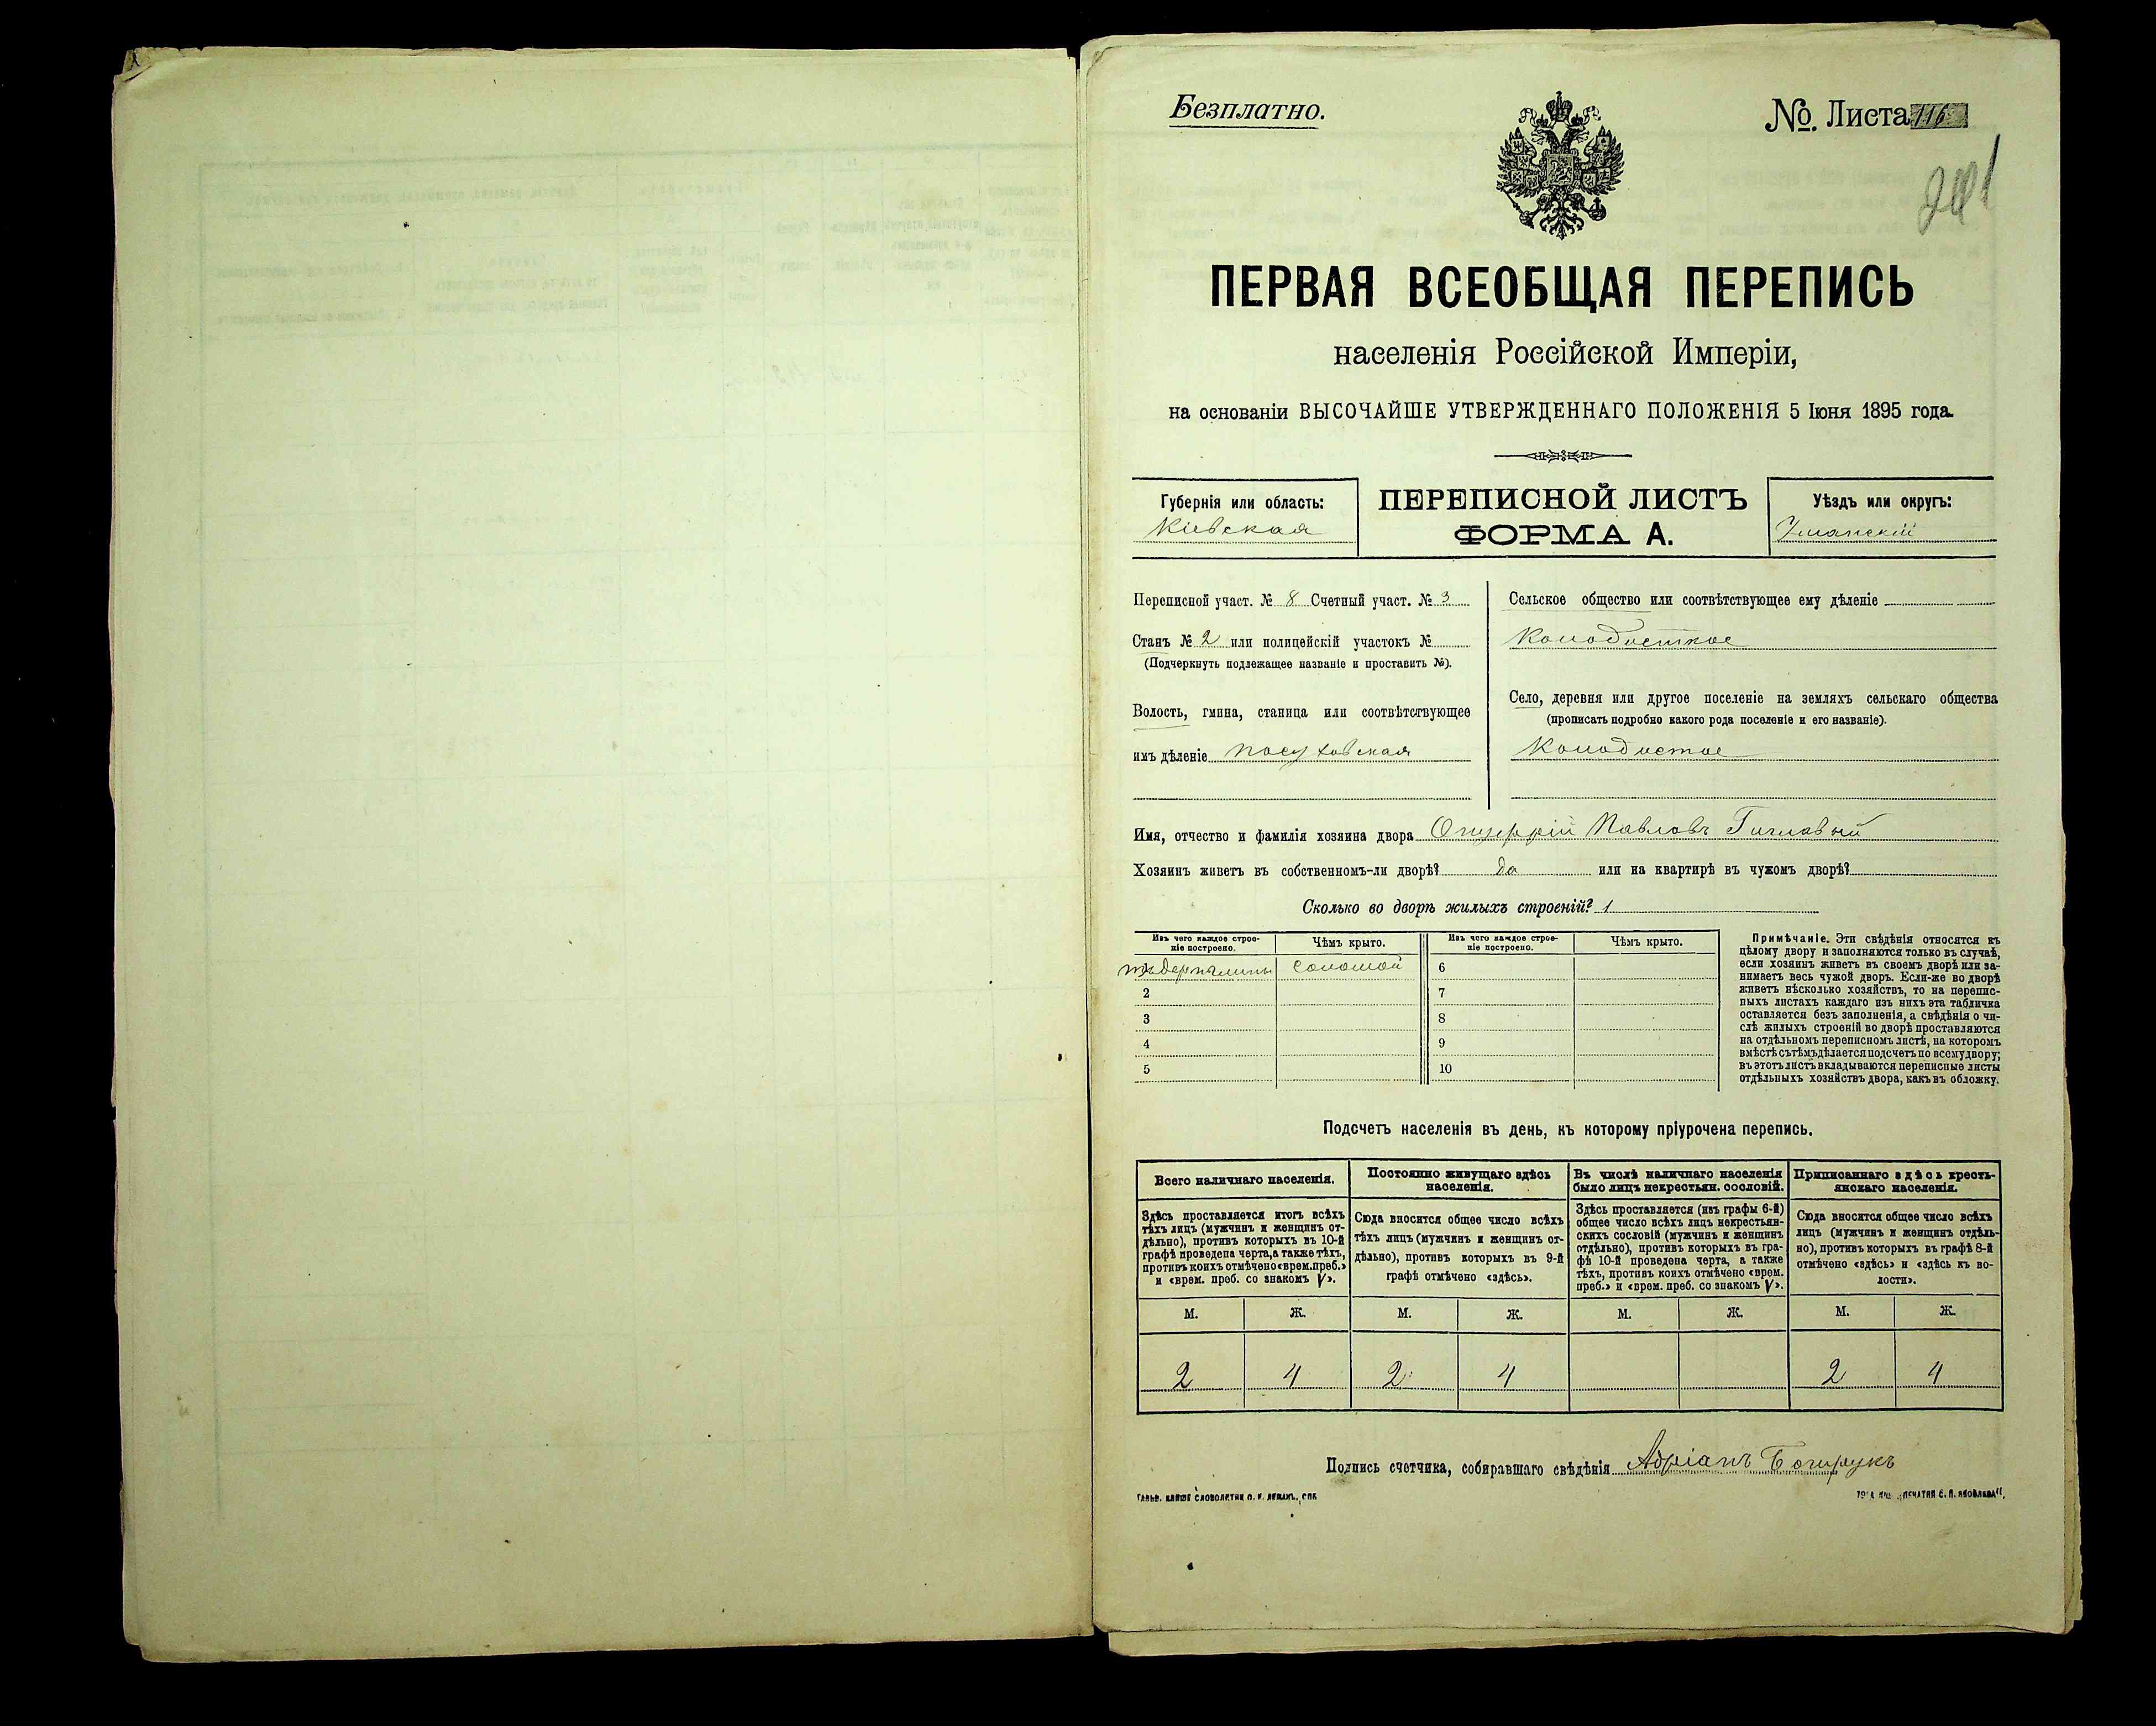 Безплатно.
№ Листа 116
ПЕРВАЯ ВСЕОБЩАЯ ПЕРЕПИСЬ
населенія Россійской Имперіи,
на основаніи ВЫСОЧАЙШЕ УТВЕРЖДЕННАГО ПОЛОЖЕНІЯ 5 Іюня 1895 года.
Губернія или область:
Кіевская
ПЕРЕПИСНОЙ ЛИСТЪ
ФОРМА А.
Уѣздъ или округъ:
Уманскій
Переписной участ. № 8 Счетный участ. № 3
Станъ № 2 или полицейскій участокъ №
(Подчеркнуть подлежащее названіе и проставить №).
Волость, гмина, станица или соотвѣтствующее
имъ дѣленіе Посуховская
Сельское общество или соотвѣтствующее ему дѣленіе
Колодисткое
Село, деревня или другое поселеніе на земляхъ сельскаго общества
(прописать подробно какого рода поселеніе и его названіе).
Колодистое
Имя, отчество и фамилія хозяина двора Онуфрій Павловъ
Хозяинъ живетъ въ собственномъ-ли дворѣ? да или на квартирѣ въ чужомъ дворѣ?
Сколько во дворѣ жилыхъ строеній? 1
Изъ чего каждое строе-
ніе построено.
Чѣмъ крыто.
Изъ чего каждое строе-
ніе построено.
Чѣмъ крыто.
соломой
6
2
7
3
8
4
9
5
10
Примѣчаніе. Эти свѣдѣнія относятся къ
цѣлому двору и заполняются только въ случаѣ,
если хозяинъ живетъ въ своемъ дворѣ или за-
нимаетъ весь чужой дворъ. Если-же во дворѣ
живетъ нѣсколько хозяйствъ, то на перепис-
ныхъ листахъ каждаго изъ нихъ эта табличка
оставляется безъ заполненія, а свѣдѣнія о чи-
слѣ жилыхъ строеній во дворѣ проставляются
на отдѣльномъ переписномъ листѣ, на которомъ
вмѣстѣ съ тѣмъ дѣлается подсчетъ по всему двору;
въ этотъ листъ вкладываются переписные листы
отдѣльныхъ хозяйствъ двора, какъ въ обложку.
Подсчетъ населенія въ день, къ которому пріурочена перепись.
Всего наличнаго населенія.
Здѣсь проставляется итогъ всѣхъ
тѣхъ лицъ (мужчинъ и женщинъ от-
дѣльно), противъ которыхъ въ 10-й
графѣ проведена черта, а также тѣхъ,
противъ коихъ отмѣчено «врем. преб.»
и «врем. преб. со знакомъ V».
Постоянно живущаго здѣсь
населенія.
Сюда вносится общее число всѣхъ
тѣхъ лицъ (мужчинъ и женщинъ от-
дѣльно), противъ которыхъ въ 9-й
графѣ отмѣчено «здѣсь».
Въ числѣ наличнаго населенія
было лицъ некрестьян. сословій.
Здѣсь проставляется (изъ графы 6-й)
общее число всѣхъ лицъ некрестьян-
скихъ сословій (мужчинъ и женщинъ
отдѣльно), противъ которыхъ въ гра-
фѣ 10-й проведена черта, а также
тѣхъ, противъ коихъ отмѣчено «врем.
преб.» и «врем. преб. со знакомъ V».
Приписаннаго здѣсь кресть-
янскаго населенія.
Сюда вносится общее число всѣхъ
лицъ (мужчинъ и женщинъ отдѣль-
но), противъ которыхъ въ графѣ 8-й
отмѣчено «здѣсь» и «здѣсь къ во-
лости».
М. Ж. М. Ж. М. Ж. М. Ж.
2 4 2 4 2 4
Подпись счетчика, собиравшаго свѣдѣнія Адріанъ